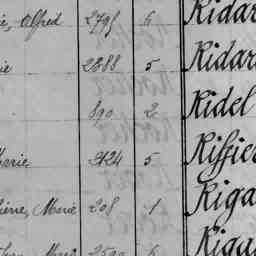 Alfred 2795 6 Ridar
ie 2388 5 Ridar
890 2 Ridel
Marie 2424 5 Riffie
ierre, Marie 208 1 Riga
Riga